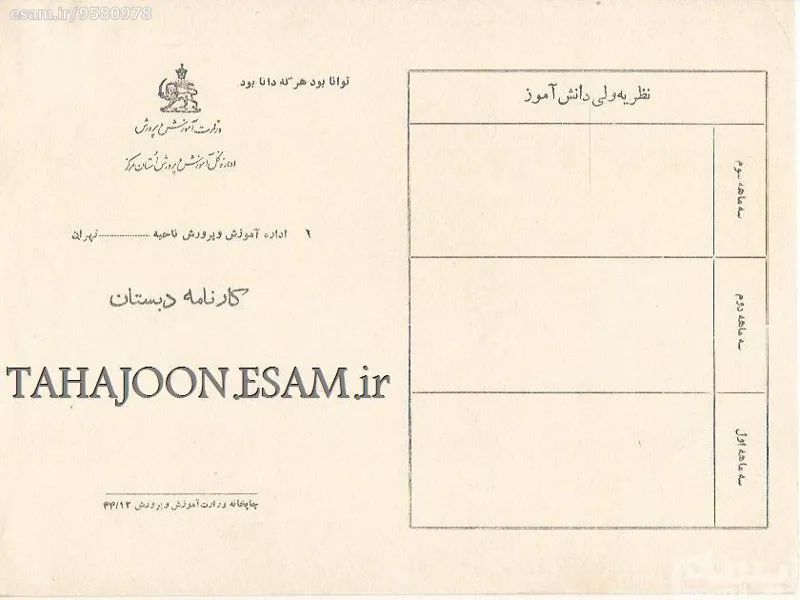 esam.ir/9580978
نظریه ولی دانش آموز
سه ماهه سوم
سه ماهه دوم
سه ماهه اول
توانا بود هر که دانا بود
وزارت آموزش و پرورش
اداره کل آموزش و پرورش استان مرکز
۱ اداره آموزش و پرورش ناحیه ............ تهران
کارنامه دبستان
TAHAJOON.ESAM.ir
چاپخانه وزارت آموزش و پرورش ۴۴/۱۲